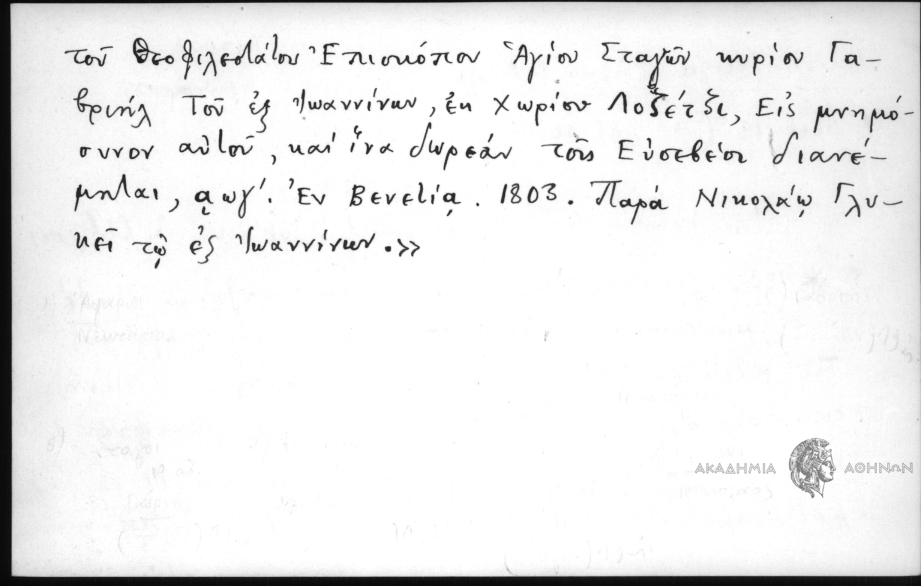 τοῦ Θεοφιλεστάτου Ἐπισκόπου Ἁγίου Σταγῶν κυρίου Γα-
βριήλ Τοῦ ἐξ Ἰωαννίνων, ἐκ Χωρίου Λοζέτζι, Εἰς μνημό-
συνον αὐτοῦ, καί ἵνα δωρεάν τοῖς Εὐσεβέσι διανέ-
μηται, ͵αωγ΄. Ἐν Βενετίᾳ. 1803. Παρά Νικολάῳ Γλυ-
κεῖ τῷ ἐξ Ἰωαννίνων.»
ΑΚΑΔΗΜΙΑ ΑΘΗΝΩΝ